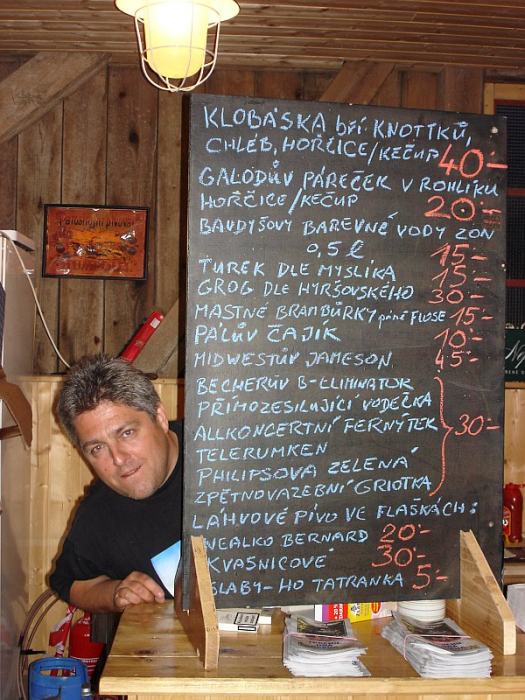 KLOBÁSKA bří KNOTTKŮ,
CHLÉB, HOŘČICE/KEČUP 40-
GALODŮV PÁREČEK V ROHLÍKU
HOŘČICE/KEČUP 20-
BAUDYŠOVY BAREVNÉ VODY ZON
0,5 l 15-
TUREK DLE MYSLÍKA 15-
GROG DLE HYRŠOVSKÉHO 30-
MASTNÉ BRAMBŮRKY FLOSE 15-
PÁLŮV ČAJÍK 10-
MIDWESTŮV JAMESON 45-
BECHERŮV B-ELIMINATOR
PŘÍMOZESILUJÍCÍ VODĚČKA
ALLKONCERTNÍ FERNÝTEK 30-
TELERUMKEN
PHILIPSOVA ZELENÁ
ZPĚTNOVAZEBNÍ GRIOTKA
LÁHVOVÉ PIVO VE FLAŠKÁCH:
NEALKO BERNARD 20-
KVASNICOVÉ 30-
SLABY-HO TATRANKA 5-